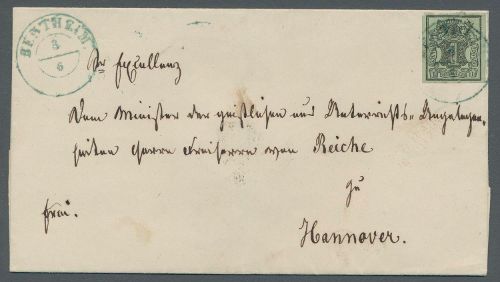 BENTHEIM
3
6
Sr Exzellenz
Dem Minister der geistlichen und Unterrichts=Angelegen=
heiten Herrn Freiherrn von Reiche
zu
frei.
Hannover.